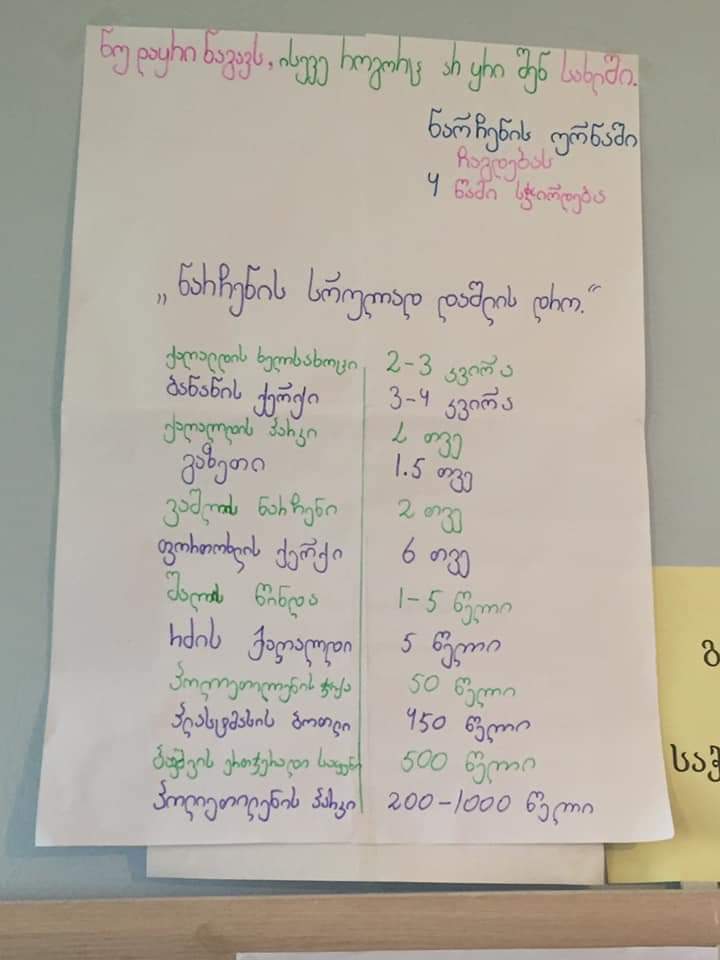 ნუ დაყრი ნაგავს, ისევე როგორც არ ყრი შენ სახლში.
ნარჩენის ურნაში
ჩაგდებას
4 წამი სჭირდება
„ნარჩენის სრულად დაშლის დრო.“
ქაღალდის ხელსახოცი 2-3 კვირა
ბანანის ქერქი 3-4 კვირა
ქაღალდის პარკი 1 თვე
გაზეთი 1.5 თვე
ვაშლის ნარჩენი 2 თვე
ფორთოხლის ქერქი 6 თვე
შალის წინდა 1-5 წელი
რძის ქაღალდი 5 წელი
პოლიეთილენის ჭიქა 50 წელი
პლასტმასის ბოთლი 450 წელი
ბავშვის ერთჯერადი საფენი 500 წელი
პოლიეთილენის პარკი 200-1000 წელი
გ
საჭ